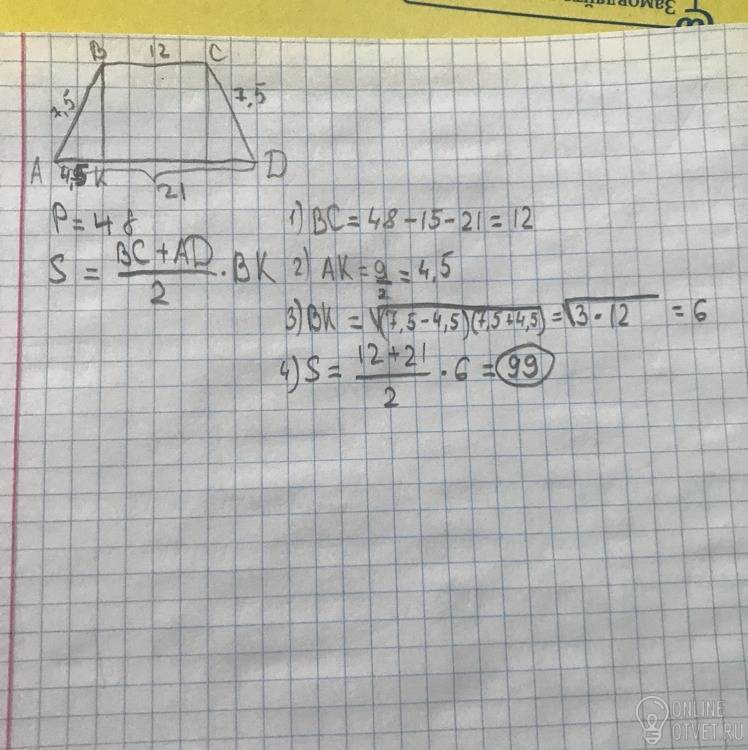 Замовляйте
B 12 C
7,5 7,5
A 4,5 K D
21
P = 48
S = (BC + AD)/2 · BK
1) BC = 48 - 15 - 21 = 12
2) AK = 9/2 = 4,5
3) BK = √(7,5 - 4,5)(7,5 + 4,5) = √3 · 12 = 6
4) S = (12 + 21)/2 · 6 = 99
ONLINE
OTVET.RU